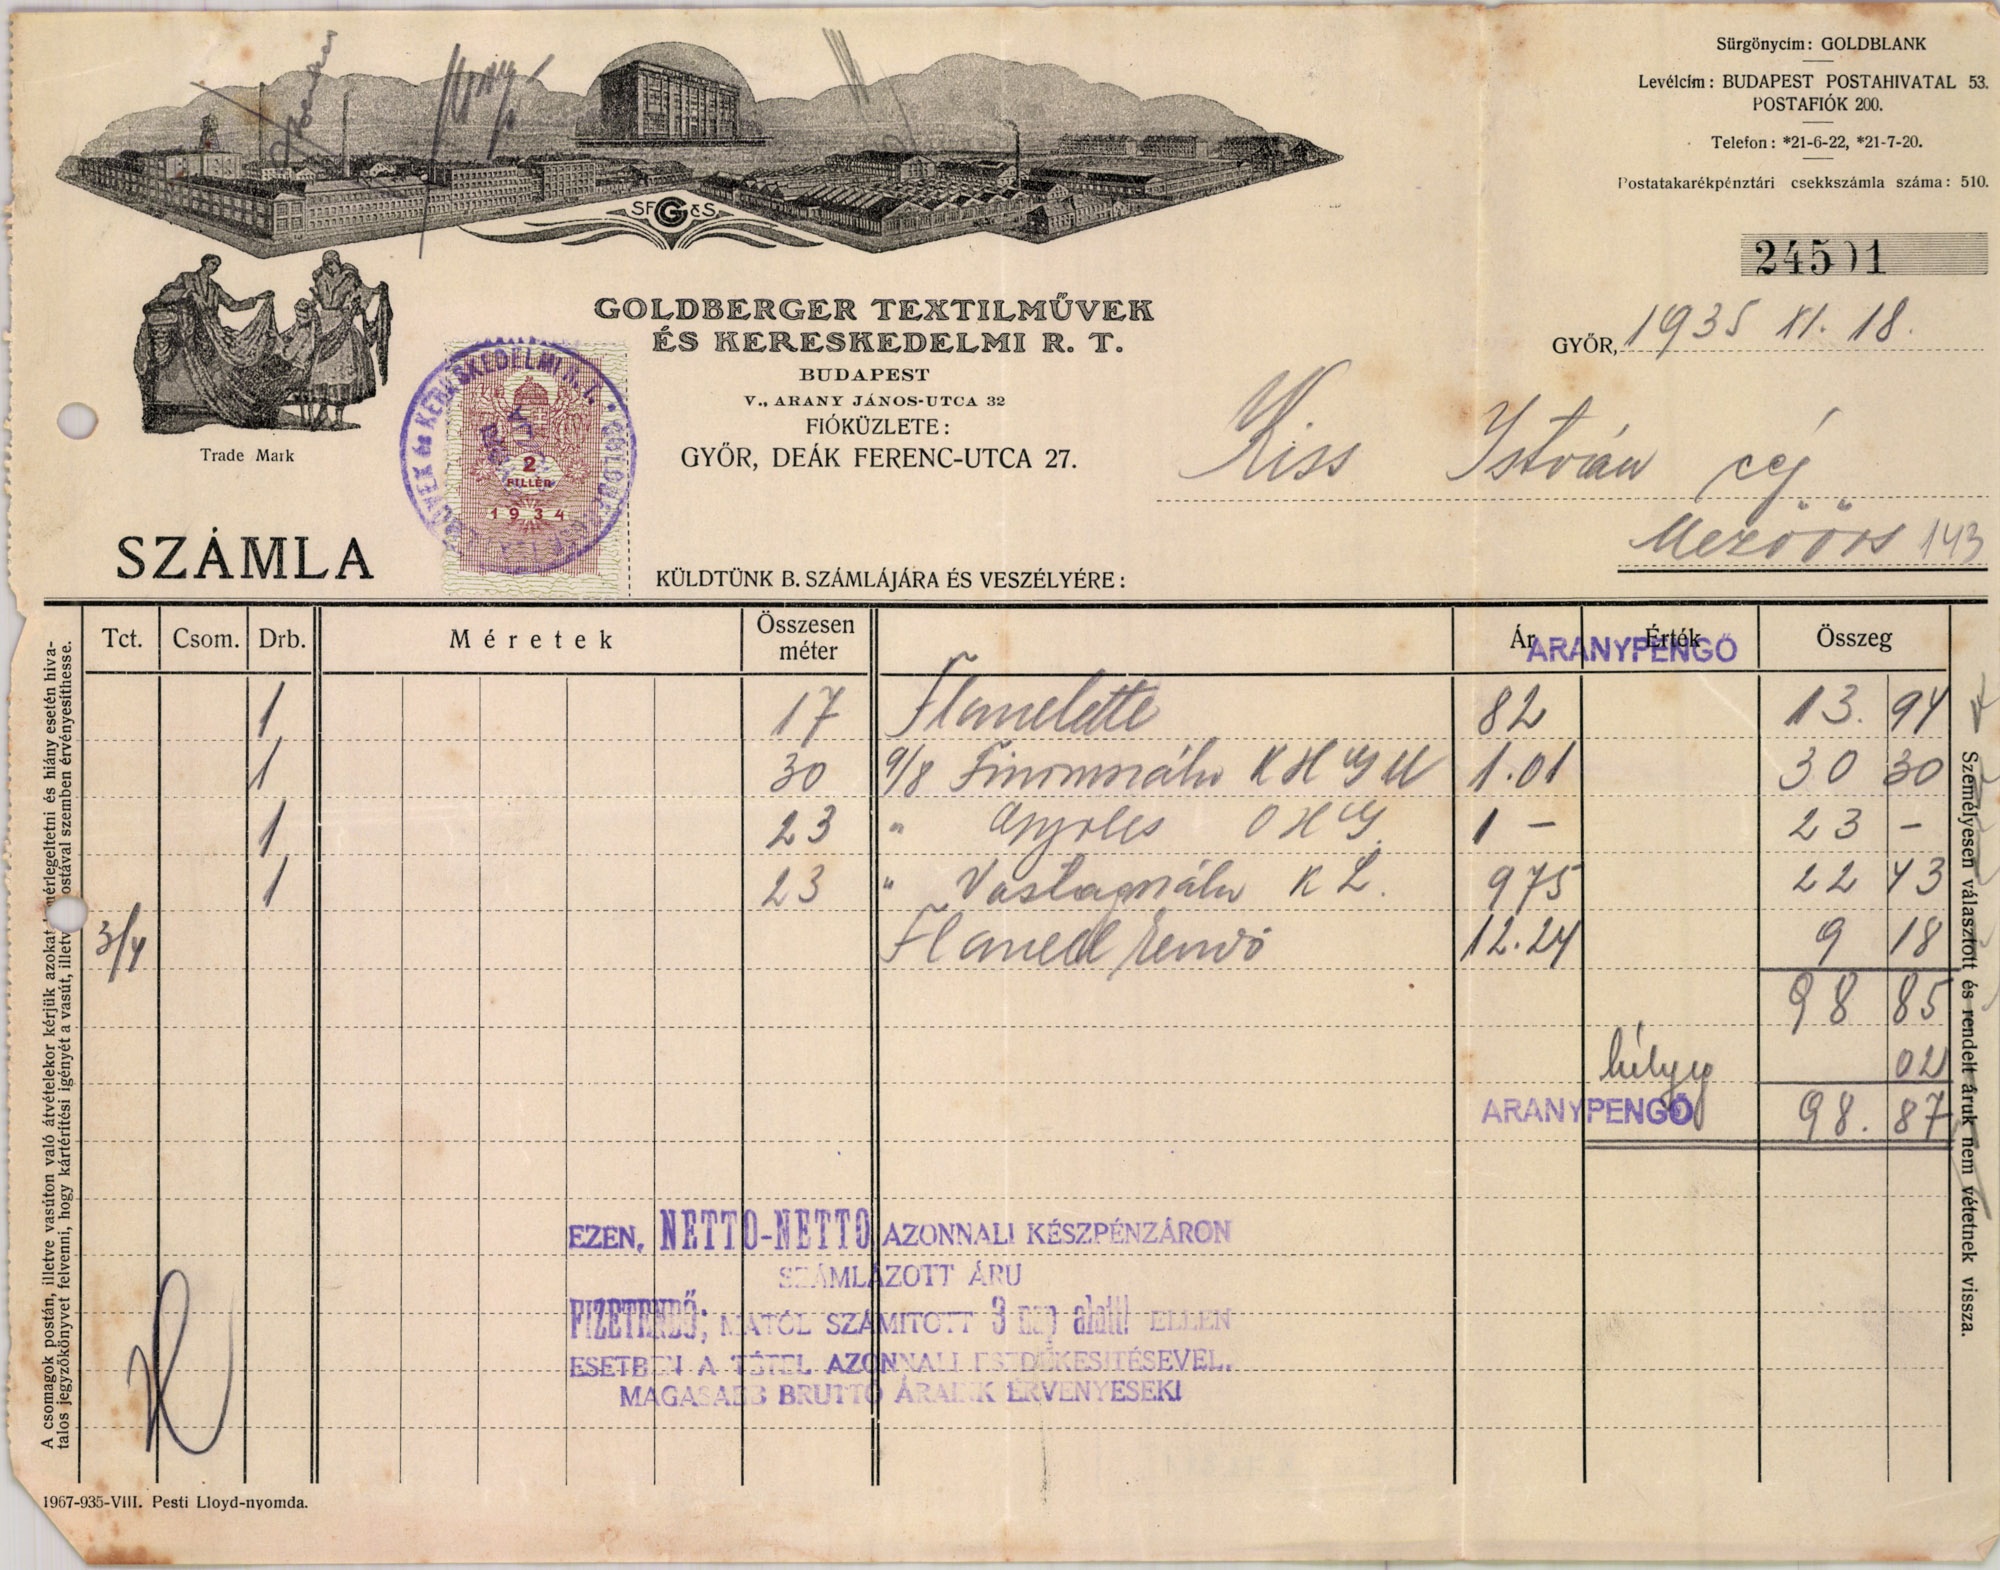 Sürgönycím: GOLDBLANK
Levélcím: BUDAPEST POSTAHIVATAL 53.
POSTAFIÓK 200.
Telefon: *21-6-22, *21-7-20.
Postatakarékpénztári csekkszámla száma: 510.
24501
SFG&S
Trade Mark
GOLDBERGER TEXTILMŰVEK
ÉS KERESKEDELMI R. T.
BUDAPEST
V., ARANY JÁNOS-UTCA 32
FIÓKÜZLETE:
GYŐR, DEÁK FERENC-UTCA 27.
2
FILLÉR
1934
GYŐR, 1935 XI. 18.
Kiss István cég
Mezőörs 143
SZÁMLA
KÜLDTÜNK B. SZÁMLÁJÁRA ÉS VESZÉLYÉRE:
Tct. Csom. Drb. Méretek Összesen méter Ár Érték Összeg
ARANYPENGŐ
1 17 Flanelette 82 13. 94
1 30 9/8 Finomszálu K H G U 1.01 30 30
1 23 " O H G 1 - 23 -
1 23 " Vastagszálu K L. 975 22 43
3/4 Flanell kendő 12.24 9 18
98 85
bélyeg 02
ARANYPENGŐ 98. 87
EZEN, NETTO-NETTO AZONNALI KÉSZPÉNZÁRON
SZÁMLÁZOTT ÁRU
FIZETENDŐ; MÁTÓL SZÁMITOTT 3 nap alatt! ELLEN
ESETBEN A TÉTEL AZONNALI ESEDÉKESITÉSÉVEL,
MAGASABB BRUTTÓ ÁRAINK ÉRVÉNYESEK!
A csomagok postán, illetve vasúton való átvételekor kérjük azokat mérlegeltetni és hiány esetén hiva-
talos jegyzőkönyvet felvenni, hogy kártérítési igényét a vasút, illetve postával szemben érvényesíthesse.
Személyesen választott és rendelt áruk nem vétetnek vissza.
1967-935-VIII. Pesti Lloyd-nyomda.